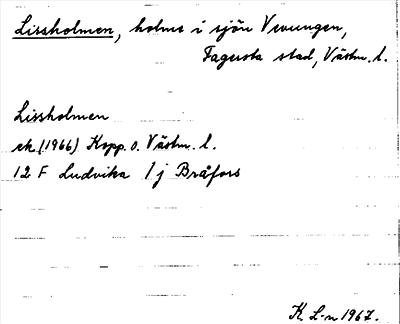 Lissholmen, holme i sjön Vevungen,
Fagersta stad, Västm. l.
Lissholmen
ek. (1966) Kopp. o. Västm. l.
12 F Ludvika 1 j Bråfors
K. L-n 1967.